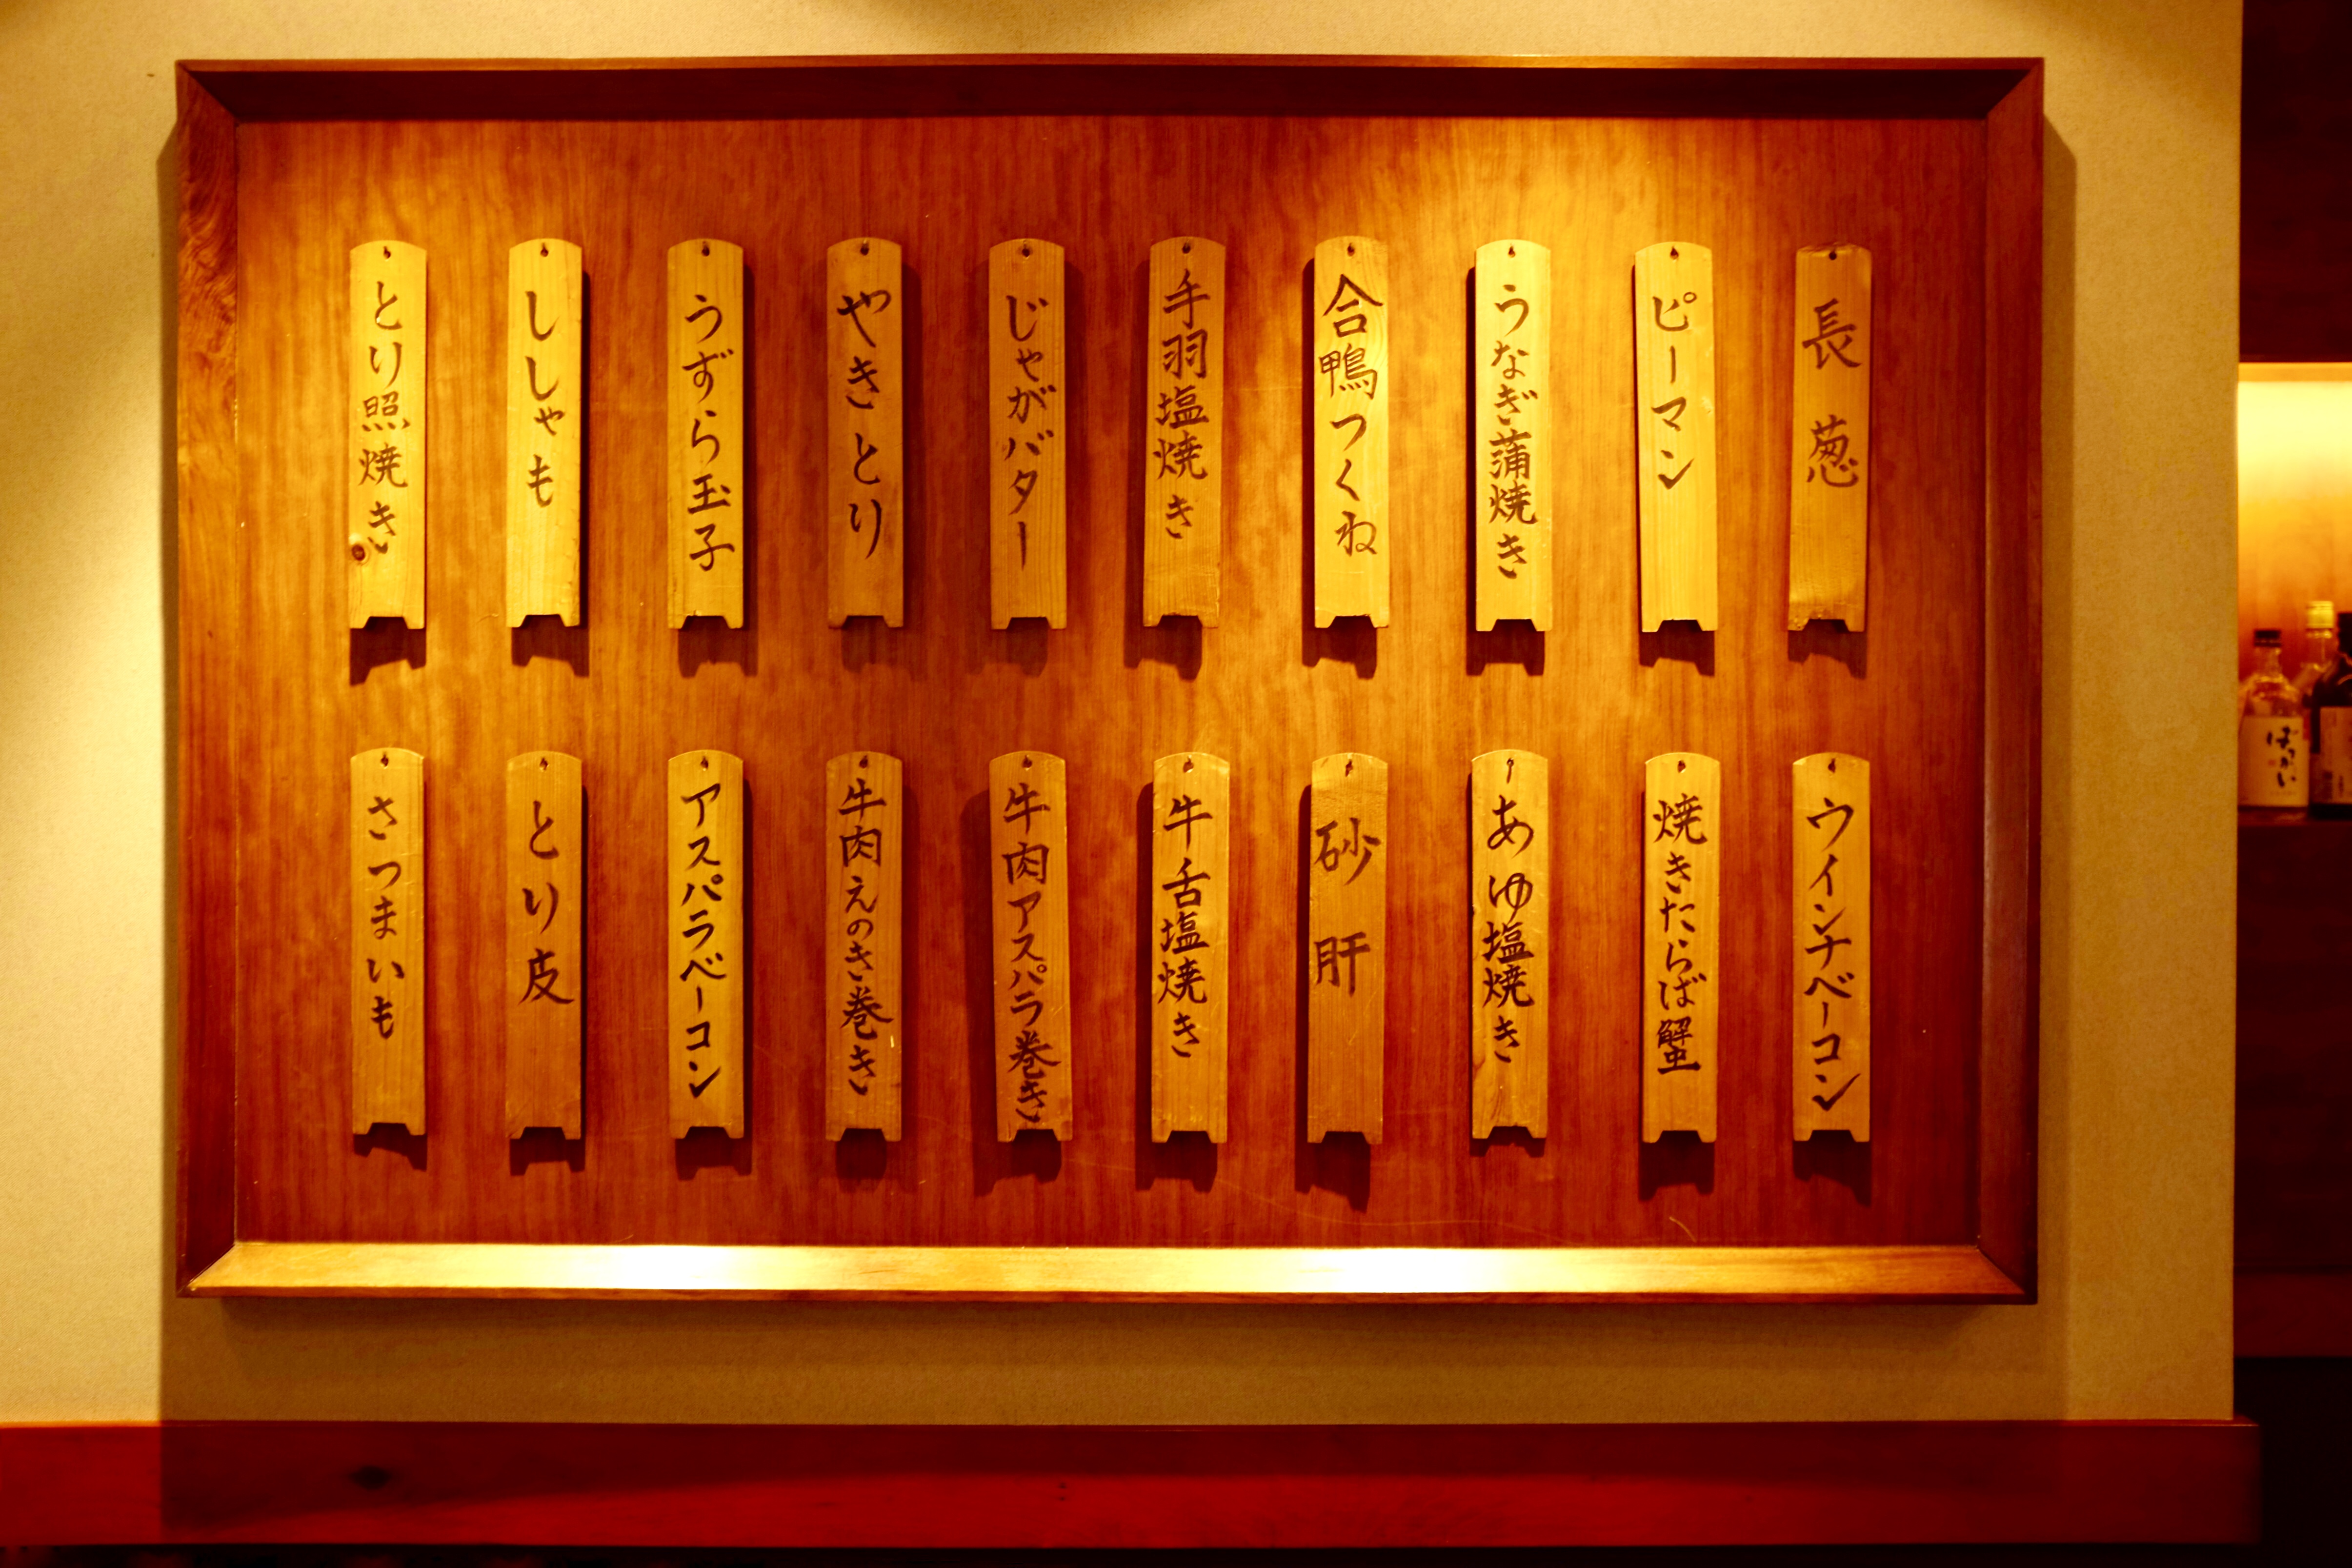 長葱
ピーマン
うなぎ蒲焼き
合鴨つくね
手羽塩焼き
じゃがバター
やきとり
うずら玉子
ししゃも
とり照焼き
ウインナベーコン
焼きたらば蟹
あゆ塩焼き
砂肝
牛舌塩焼き
牛肉アスパラ巻き
牛肉えのき巻き
アスパラベーコン
とり皮
さつまいも